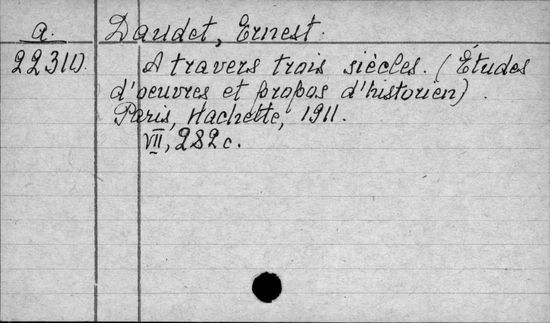 a. Daudet, Ernest.
22311). A travers trois siècles. (Études
d'oeuvres et propos d'historien).
Paris, Hachette, 1911.
VII, 282 c.